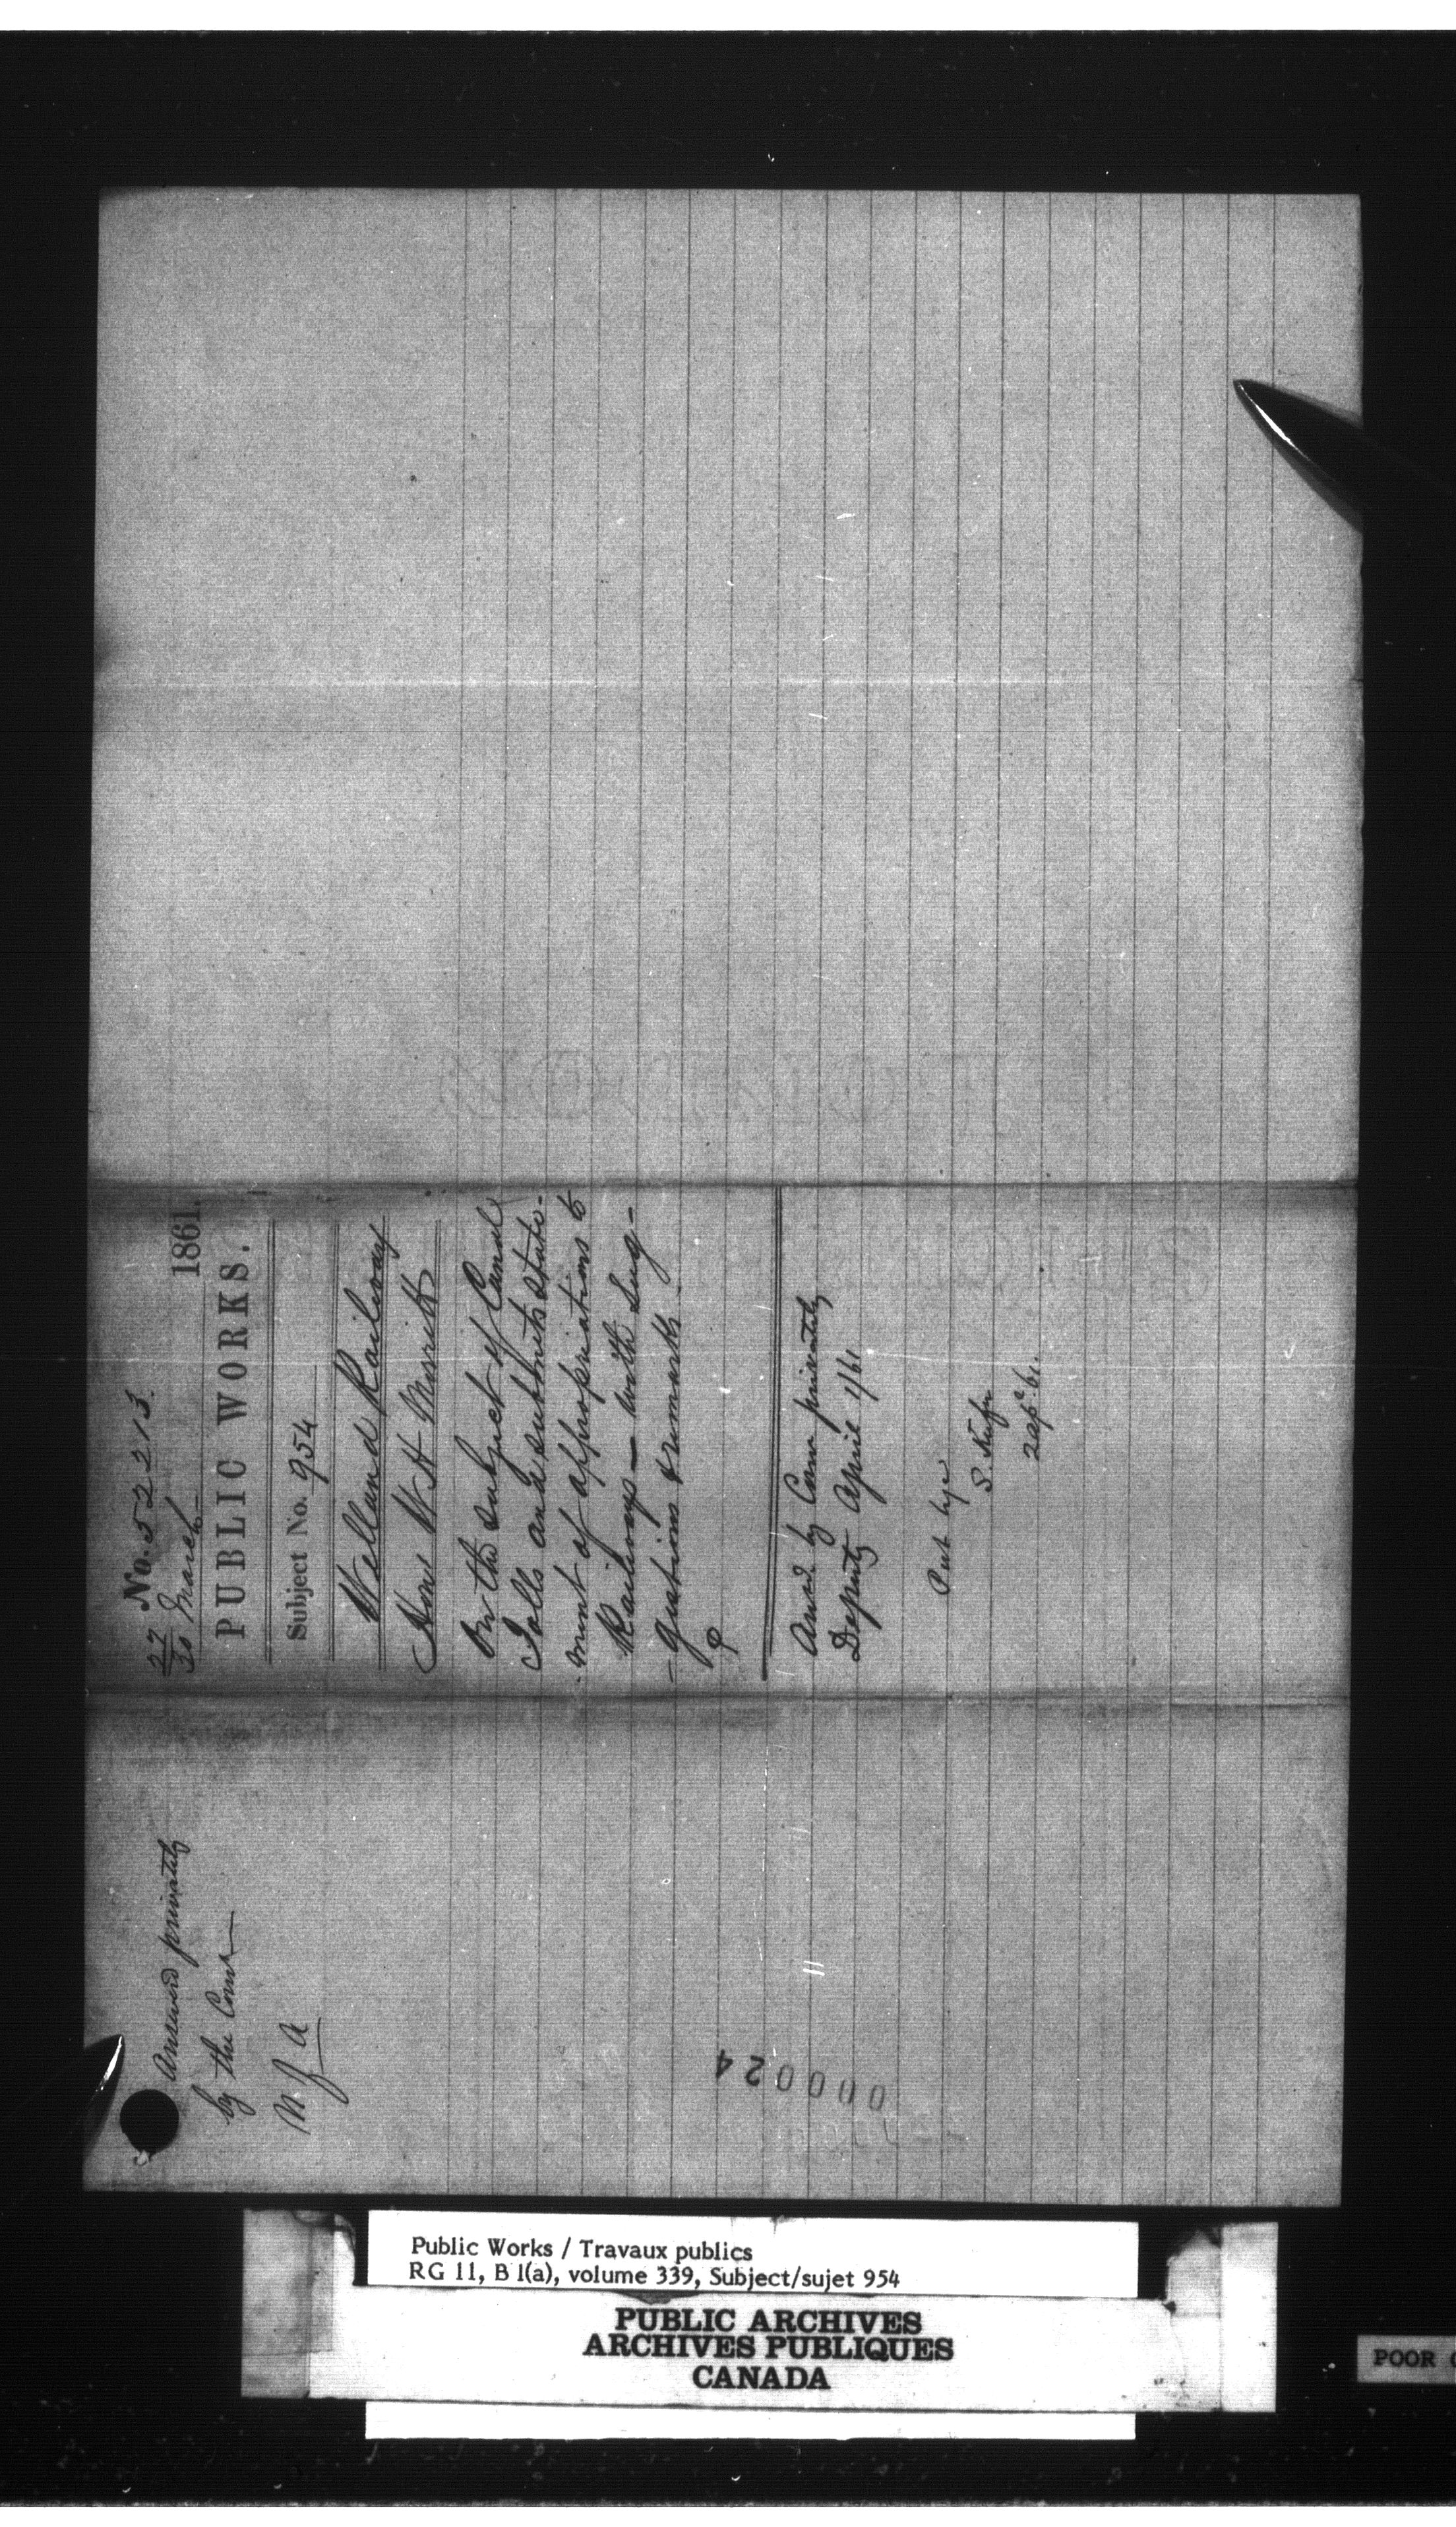 No. 52213.
27
30 March 1861.
PUBLIC WORKS.
Subject No. 954
Welland Railway
Hon W H Merritt
On the subject of Canal
Tolls and submits state-
-ment of appropriations to
Railways — with sug-
-gestions & remarks
Ansd by Com privately
Deputy April 1/61
Put bye
2 ap. 61.
Answered privately
by the Comr
000024
Public Works / Travaux publics
RG 11, B 1(a), volume 339, Subject/sujet 954
PUBLIC ARCHIVES
ARCHIVES PUBLIQUES
CANADA
POOR